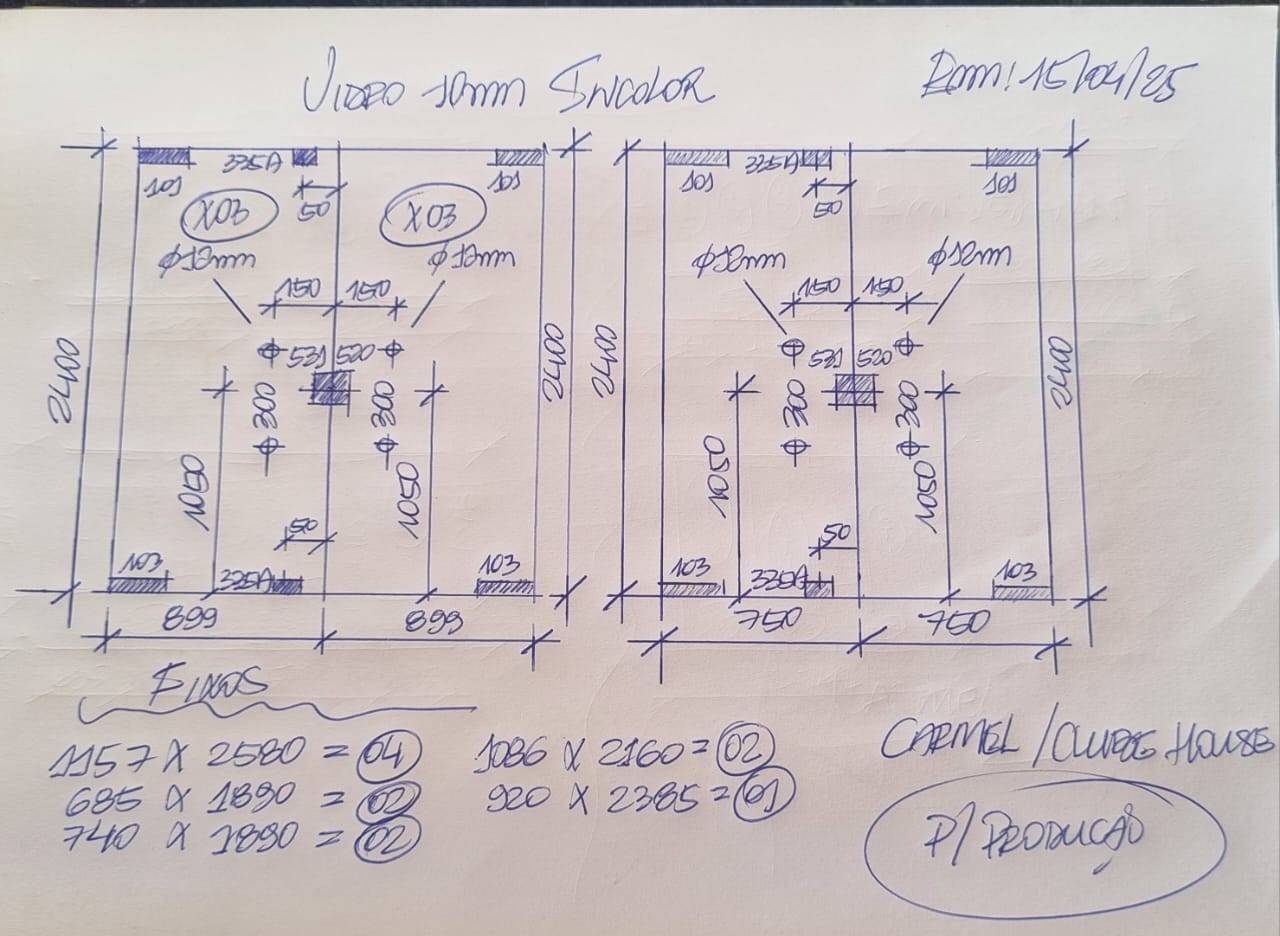 VIDRO 10mm INCOLOR
15/04/25
101 335A 101 101 335A 101
50 50
X03 X03
φ12mm φ12mm φ12mm φ12mm
150 150 150 150
2400 531 520 2400 2400 531 520 2400
300 300 300 300
1050 1050 1050 1050
50 50
103 335A 103 103 335A 103
899 899 750 750
FIXOS
1157 X 2580 = 04 1086 X 2160 = 02
685 X 1890 = 02 920 X 2385 = 01
740 X 1890 = 02
CARMEL / HOUSE
P/ PRODUÇÃO